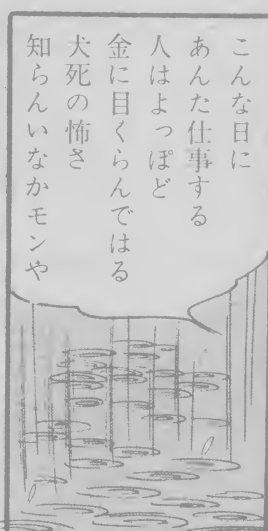 こんな日に
あんた仕事する
人はよっぽど
金に目くらんではる
犬死の怖さ
知らんいなかモンや